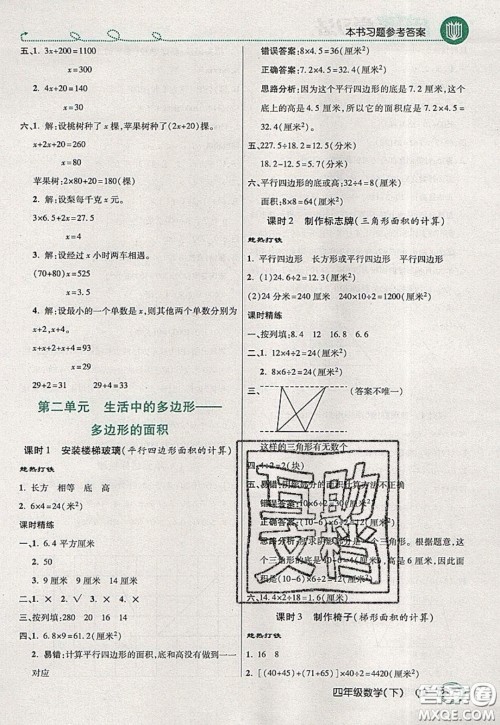 本书习题参考答案
五、1. 3x+200=1100
x=300
2. 140-2x=20
x=60
六、1. 解:设桃树种了x棵,苹果树种了(2x+20)棵。
x+2x+20=260
x=80
苹果树:2×80+20=180(棵)
2. 解:设梨每千克x元。
3×6.5+2x=27.5
x=4
3. 解:设经过x小时两车相遇。
(70+80)x=525
x=3.5
4. 解:设最小的一个单数是x,则其他两个单数分别为
x+2,x+4。
x+x+2+x+4=93
x=29
29+2=31 29+4=33
第二单元 生活中的多边形——
多边形的面积
课时1 安装楼梯玻璃(平行四边形面积的计算)
趁热打铁
1. 长方 相等 底 高
2. 6×4=24(米²)
课时精练
一、1. 6.4平方厘米
2. 50
3. 9厘米 4厘米 7厘米 4厘米
二、1. × 2. × 3. ×
三、按列填:280 20 15 144
四、1. 6.8×9=61.2(厘米²)
2. 易错:计算平行四边形的面积时,底与高一定要一一
对应
错误答案:8×4.5=36(厘米²)
正确答案:7.2×4.5=32.4(厘米²)
五、227.5÷18.2=12.5(分米)
18.2-12.5=5.7(分米)
六、平行四边形的底或高:32÷4=8(厘米)
面积:8×8=64(厘米²)
课时2 制作标志牌(三角形面积的计算)
趁热打铁
1. 平行四边形 长方形或平行四边形 平行四边形
2. (1)24.6÷2=12.3(厘米²)
(2)24分米=240厘米 240×10÷2=1200(厘米²)
课时精练
一、按列填:8.4 12 16.8 6.8
二、1. 12×4÷2=24(厘米²)
2. 8×6÷2=24(厘米²)
三、
(答案不唯一)
这样的三角形有无数个
四、4÷2=2(块)
互助
文档
课时3 制作椅子(梯形面积的计算)
趁热打铁
2. [(40+45)+(71+65)]×40÷2=4420(厘米²)
四年级数学(下)